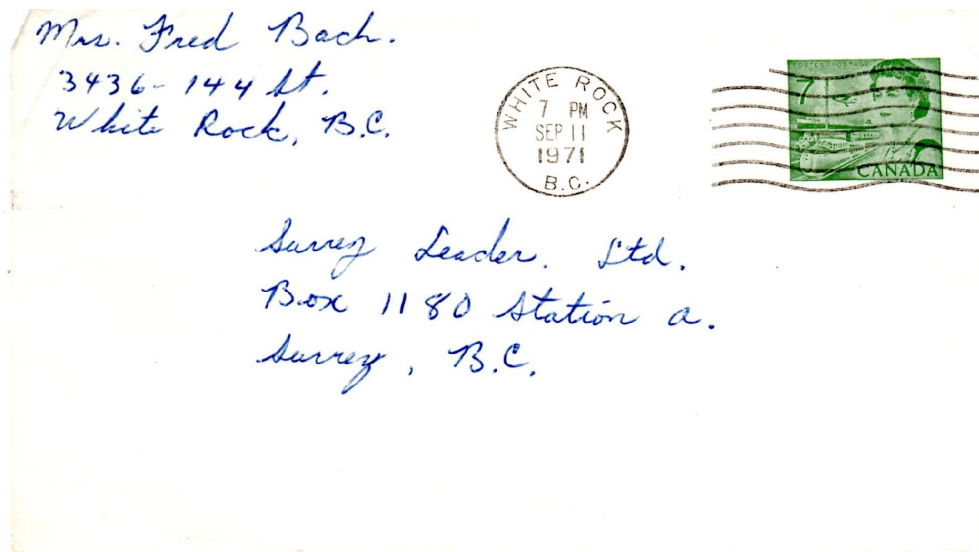 Mrs. Fred Bach.
3436-144 St.
White Rock, B.C.
WHITE ROCK
7 PM
SEP 11
1971
B.C.
POSTES POSTAGE
7
CANADA
Surrey Leader. Ltd.
Box 1180 Station a.
Surrey, B.C.